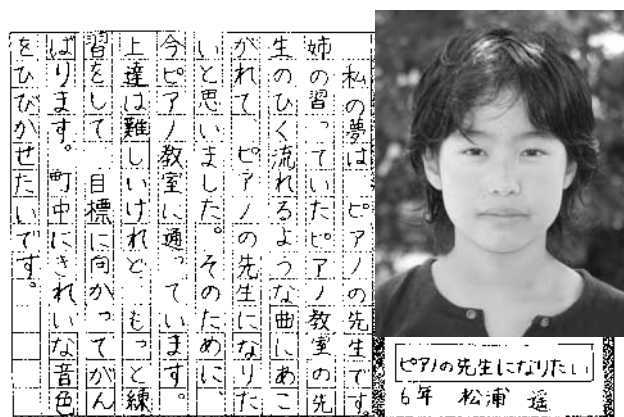 私の夢は、ピアノの先生です。
姉の習っていたピアノ教室の先
生のひく流れるような曲にあこ
がれて、ピアノの先生になりた
いと思いました。そのために、
今ピアノ教室に通っています。
上達は難しいけれど、もっと練
習をして、目標に向かってがん
ばります。町中にきれいな音色
をひびかせたいです。
ピアノの先生になりたい
6年 松浦 遥